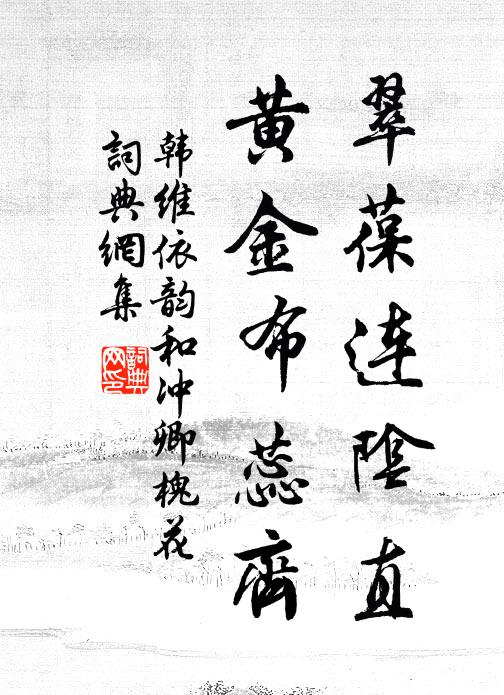 翠葆连阴直
黄金布蕊齊
韩维依韵和冲卿槐花
詞典網集
詞典网印